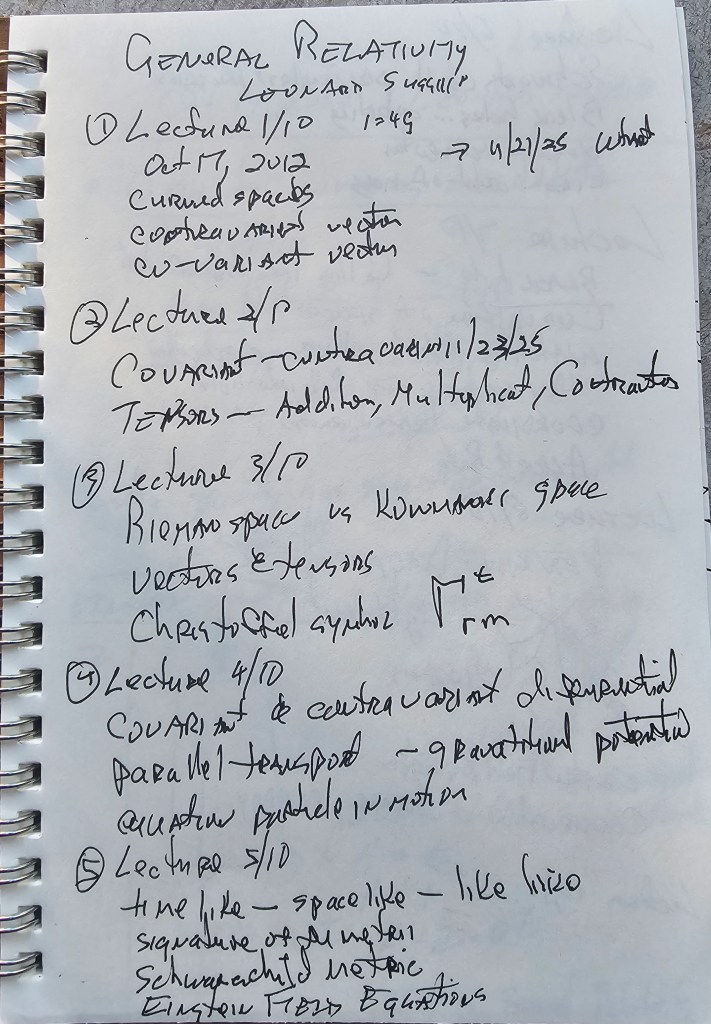 GENERAL RELATIVITY
LEONARD
① Lecture 1/10 1:49
Oct 17, 2012 → 11/21/25
curved spaces
contravariant vector
co-variant vector
② Lecture 2/10
COVARIANT - contravariant 11/23/25
TENSORS - Addition, Multiplicat, Contraction
③ Lecture 3/10
space vs space
vectors & tensors
Christoffel symbol Γ^t_rm
④ Lecture 4/10
COVARIANT & contravariant differential
parallel transport - gravational potential
equation particle in motion
⑤ Lecture 5/10
time like - space like - like
signature of metric
metric
EINSTEIN FIELD EQUATIONS